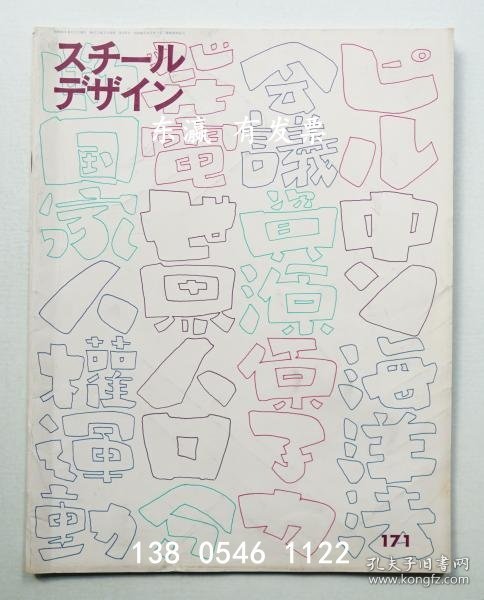 スチール
デザイン
ピル中ソ海洋法
会議資源原子力
発電世界人口会
国家人権運動
东瀛 有发票
171
138 0546 1122
孔夫子旧书网
kongfz.com